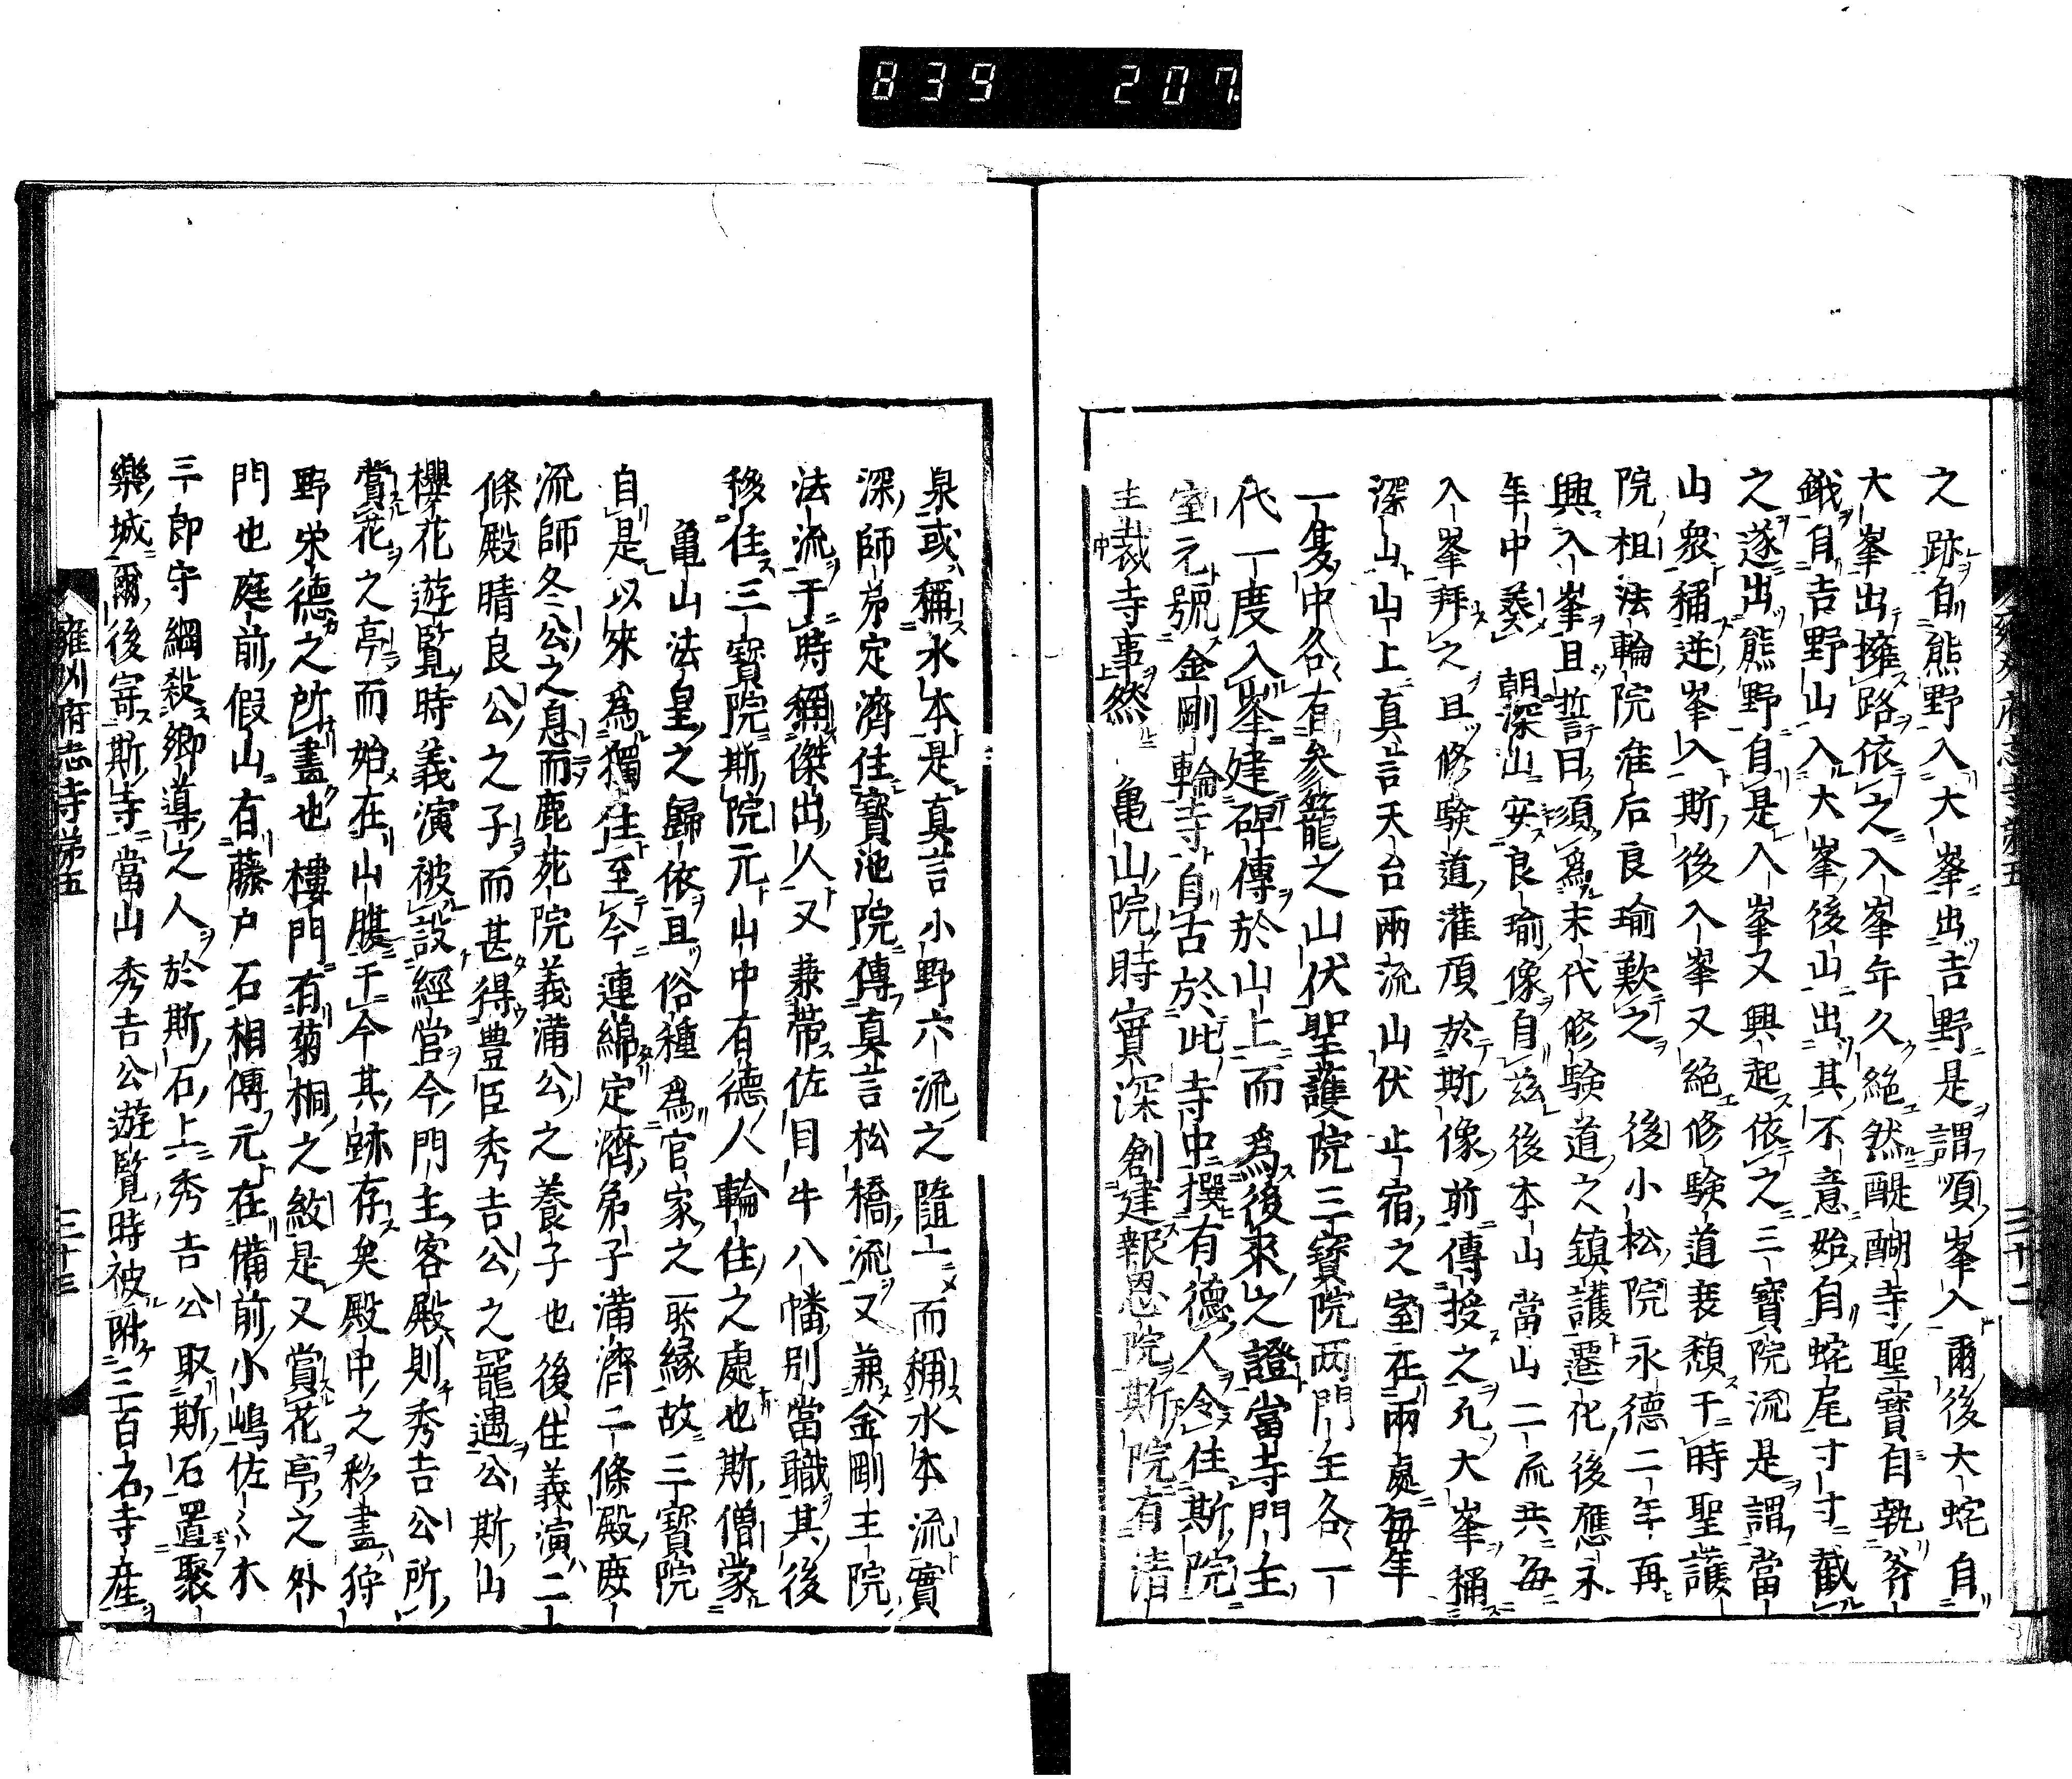 839 207
之跡自熊野入大峯出吉野是謂順峯入爾後大蛇自
大峯出擁路依之入峯年久絶然醍醐寺聖寶自執斧
鉞自吉野山入大峯後山出其不意始自蛇尾寸寸截
之遂出熊野自是入峯又興起依之三寶院流是謂當
山衆稱逆峯入斯後入峯又絶修驗道衰頽于時聖護
院祖法輪院准后良瑜歎之 後小松院永德二年再
興入峯且誓曰須爲末代修驗道之鎮護遷化後應永
年中葬 朝深山安良瑜像自茲後本山當山二流共毎
入峯拜之且修驗道灌頂於斯像前傳授之凡大峯稱
深山山上真言天台兩流山伏止宿之室在兩處毎年
一隻中各有參籠之山伏聖護院三寶院两門主各一
代一度入峯建碑傳於山上而爲後來之證當寺門主
室元號金剛輪寺自古於此寺中撰有德人令住斯院
主裁寺事然 亀山院時實深創建報恩院斯院有清
雍州府志寺第五 三十三
泉或稱水本是真言小野六流之隨一而稱水本流實
深師弟定濟住寶池院傳真言松橋流又兼金剛主院
法流于時稱傑出人又兼帶佐目牛八幡別當職其後
移住三寶院斯院元山中有德人輪住之處也斯僧蒙
亀山法皇之歸依且俗種爲官家之所緣故三寶院
自是以來爲獨住至今連綿定濟弟子滿濟二條殿庶
流師冬公之息而鹿苑院義滿公之養子也後住義演二
條殿晴良公之子而甚得豊臣秀吉公之寵遇公斯山
櫻花遊覧時義演被設經営今門主客殿則秀吉公所
賞花之亭而始在山腰于今其跡存矣殿中之彩畫狩
野栄德之所畫也樓門有菊桐之紋是又賞花亭之外
門也庭前假山有藤戸石相傳元在備前小嶋佐々木
三郎守綱殺郷導之人於斯石上秀吉公取斯石置聚
樂城爾後寄斯寺當山秀吉公遊覧時被附三百石寺産